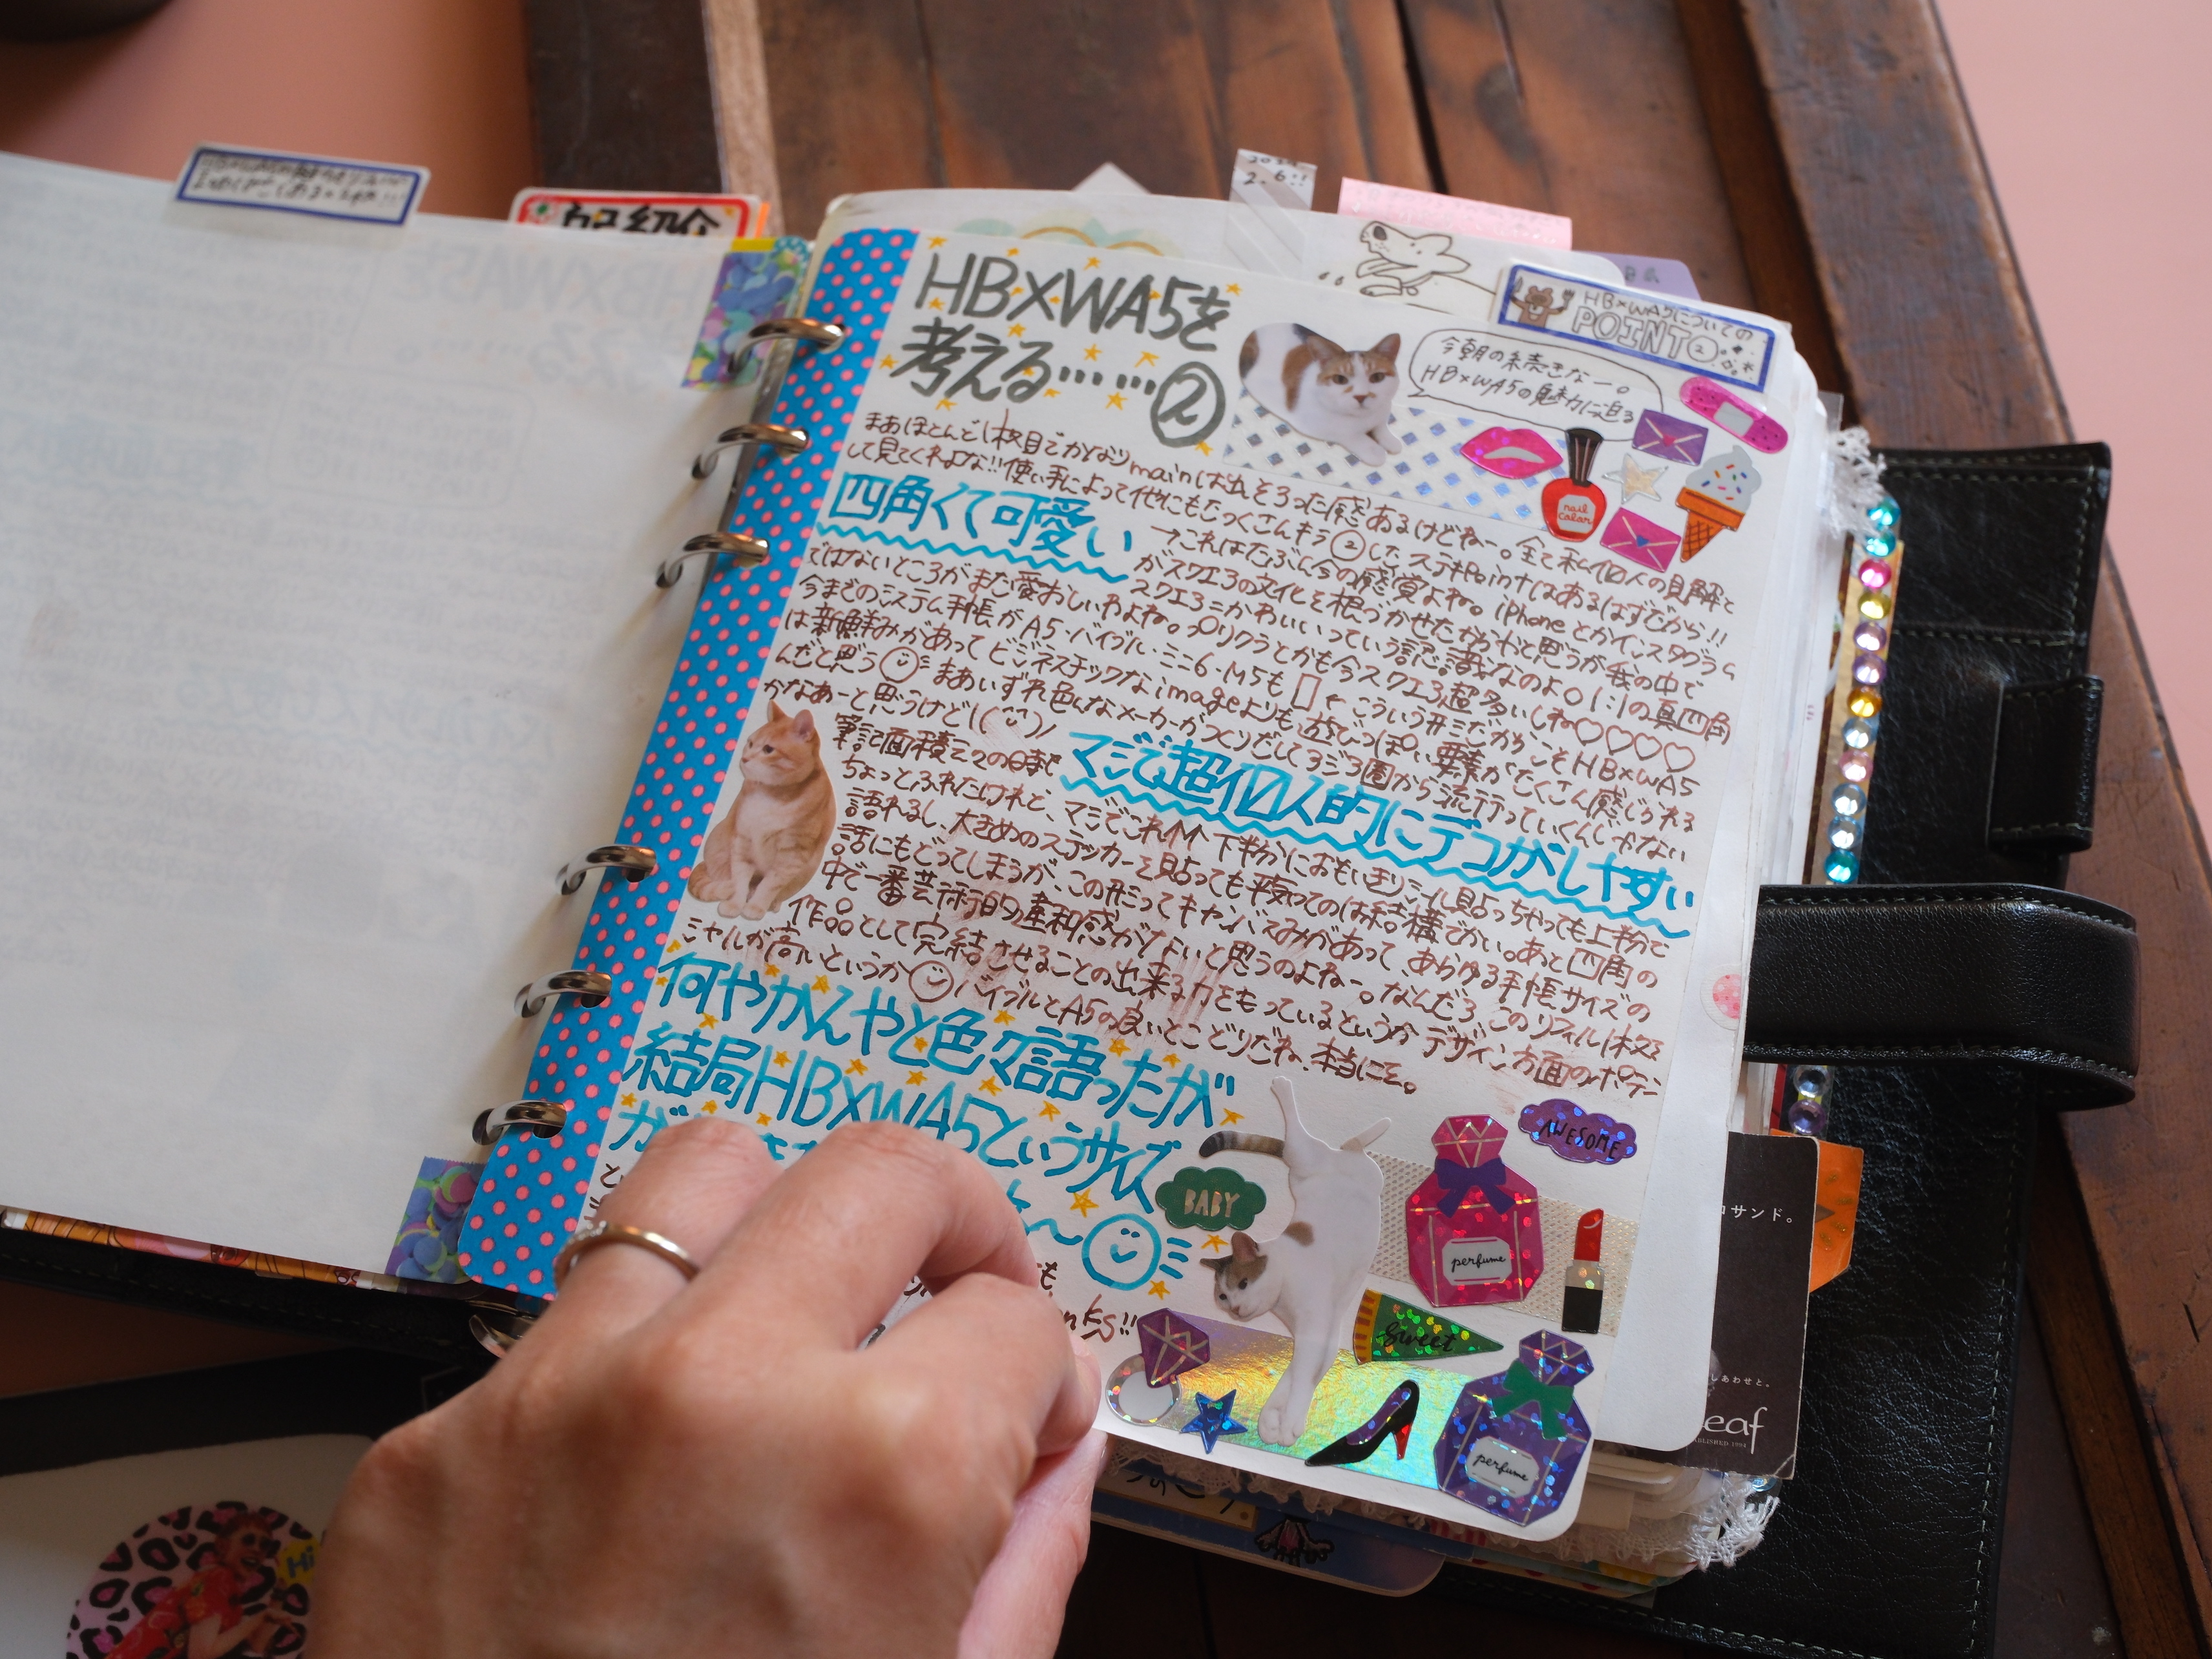 2.6!!
HB×WA5についての
POINT②
HB×WA5を
考える……②
今朝の続きなー。
HB×WA5の魅力に迫る
nail
color
まあほとんど1枚目でかなりmainは出そろった感あるけどねー。全て私個人の見解と
して見てくれよな!!使い手によって他にもたっくさんキラ②したステキPointはあるはずだから!!
四角くて可愛い
→これはたぶん今の感覚よね。iPhoneとかインスタグラム
がスクエアの文化を根づかせたからやと思うが我の中で
スクエア=かわいいっていう認識なのよ。1:1の真四角
ではないところがまた愛おしいわよね。プリクラとかも今スクエア超多いしね♡♡♡♡
今までのシステム手帳がA5・バイブル・ミニ6・M5も▯←こういう形だからこそHB×WA5
は新鮮みがあってビジネスチックなimageよりも遊びっぽい要素がたくさん感じられる
んだと思う まあいずれ色んなメーカーがつくりだしてジ圏から流行っていくんじゃない
かなあーと思うけど!
マジで超個人的にデコがしやすい
筆記面積云々の時も
ちょっとふれたけれど、マジでこれ 下半分におもいきりシール貼っちゃっても上半分で
語れるし、大きめのステッカーを貼っても平気ってのは結構でかい。あと四角の
話にもどってしまうが、この形ってキャンバスみがあって、あらゆる手帳サイズの
中で一番芸術的違和感がないと思うのよねー。なんだろこのリフィル1枚を
作品として完結させることの出来る力をもっているというかデザイン方面のポテン
シャルが高いというか バイブルとA5の良いとこどりだね、本当にさ。
何やかんやと色々語ったが
結局HB×WA5というサイズ
が
BABY
AWESOME
perfume
sweet
perfume
サンド。
しあわせと。
eaf
Hi